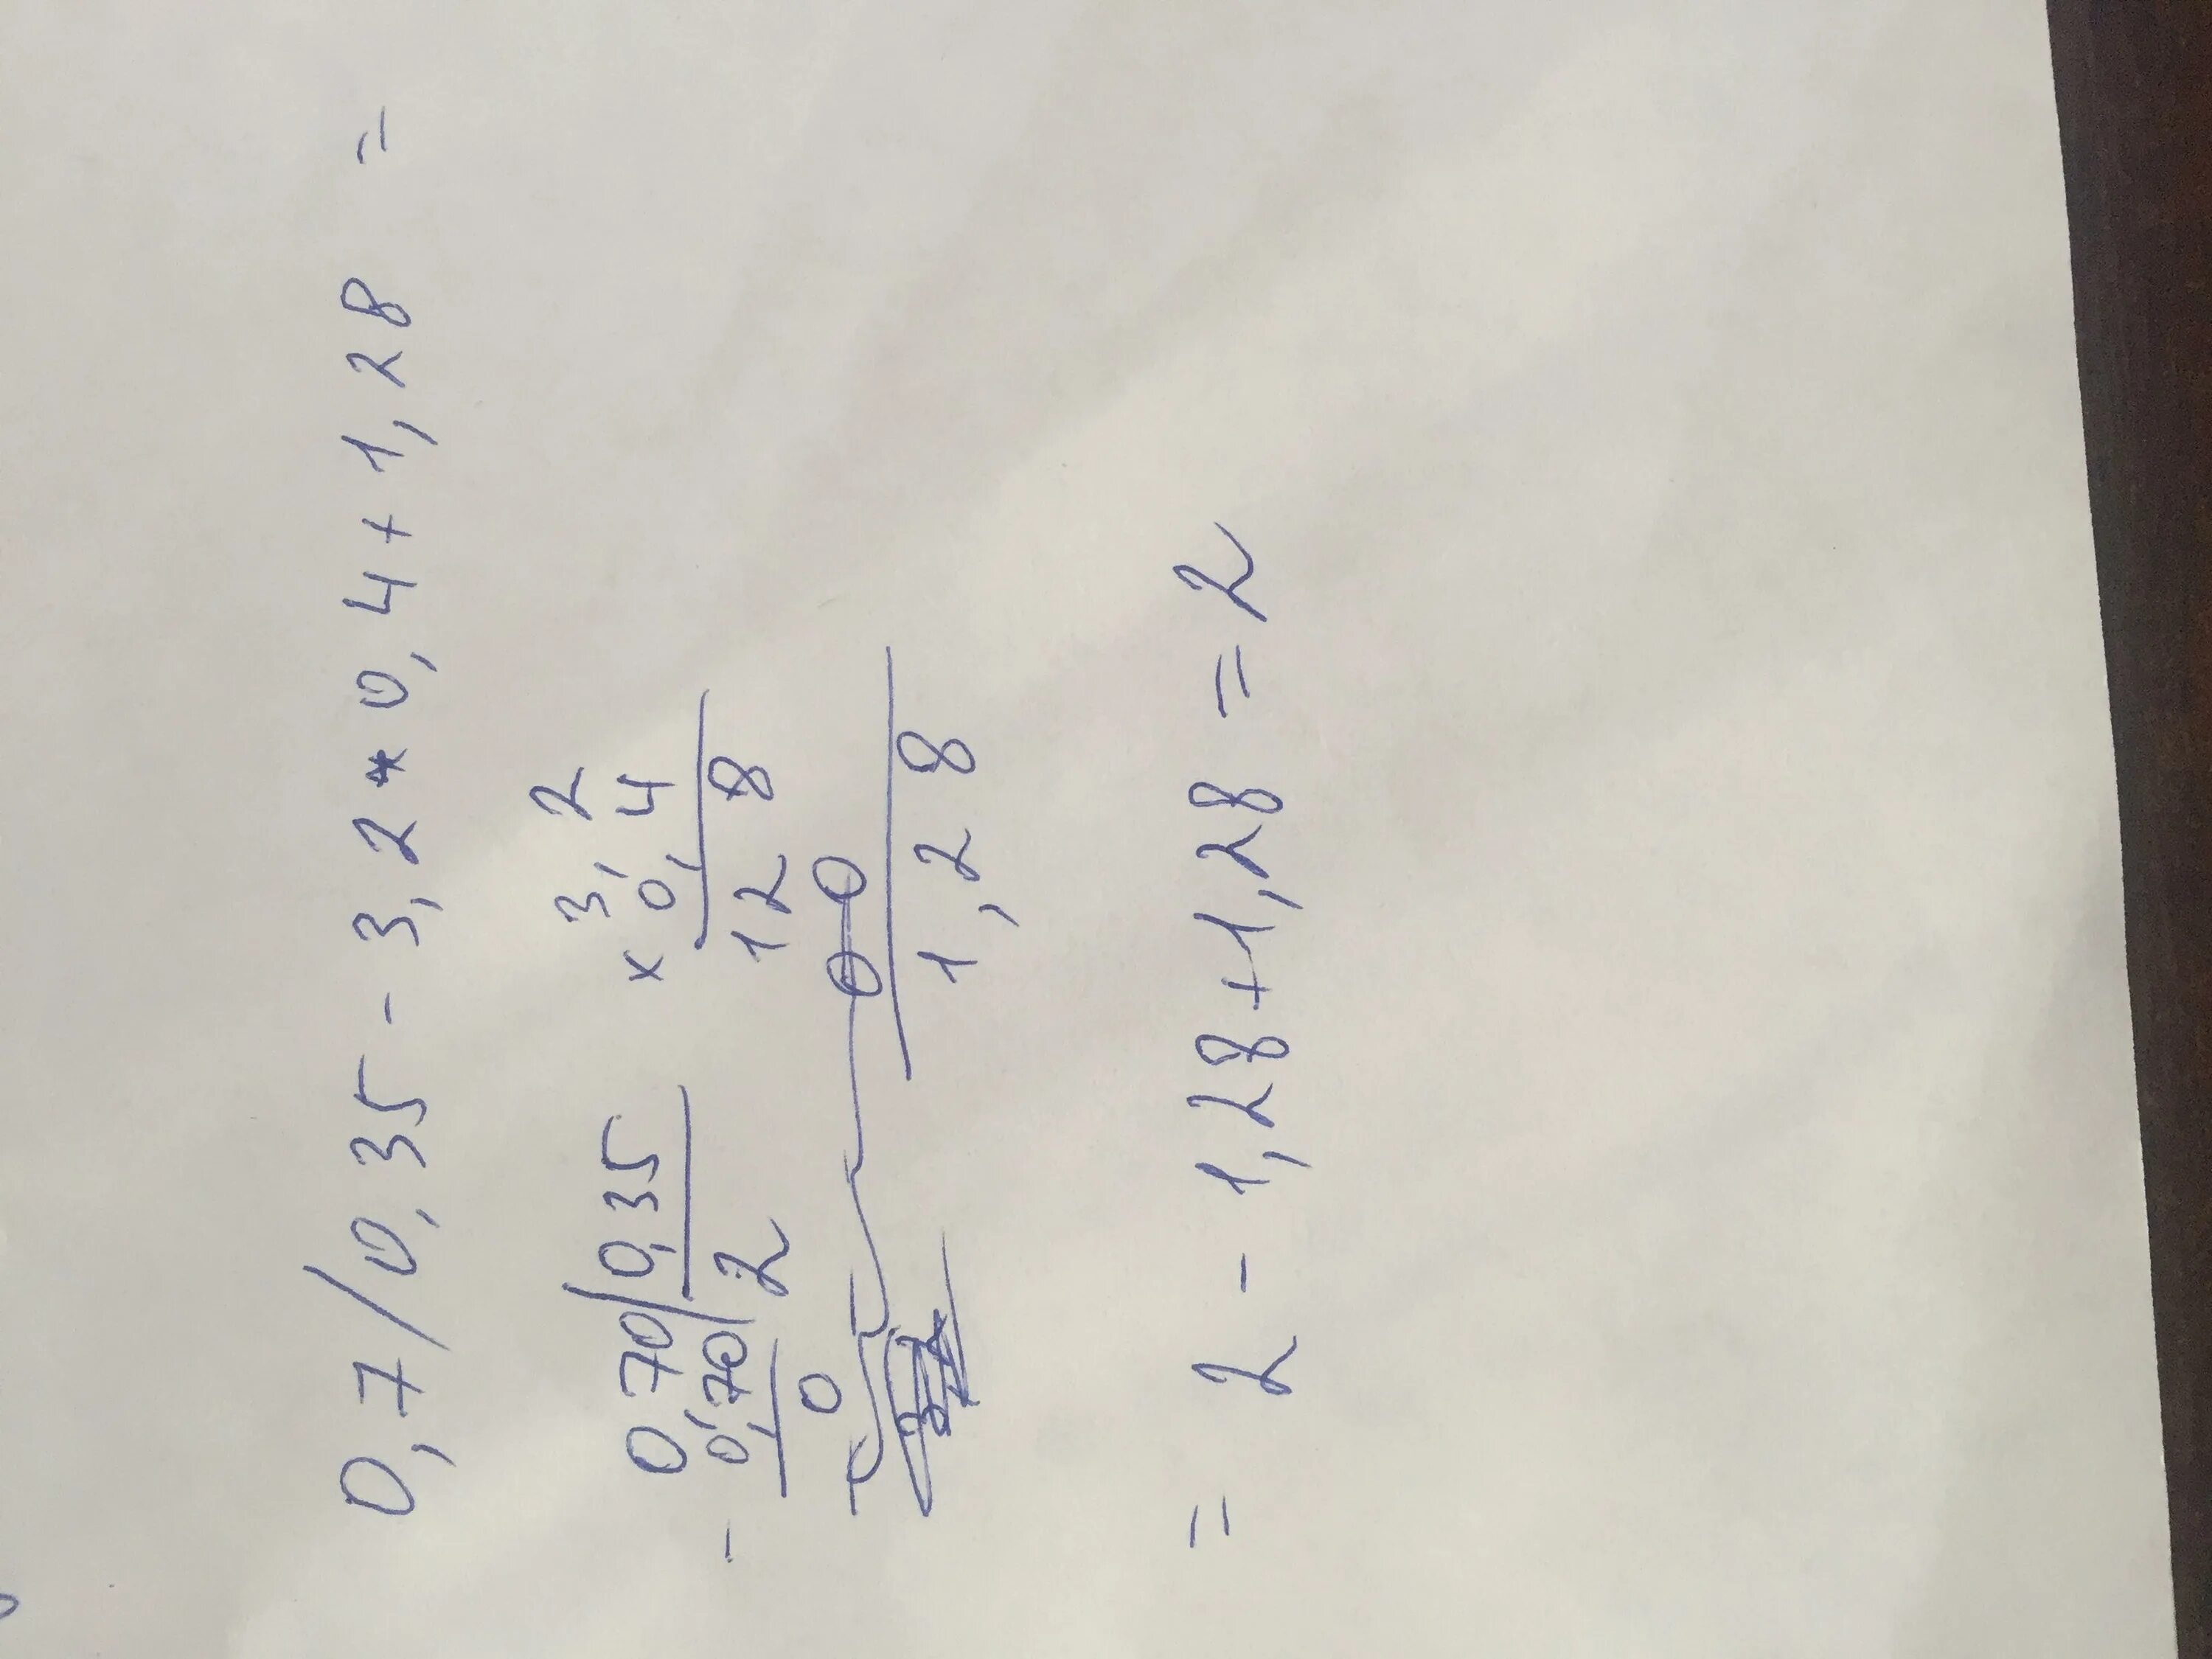 0,7/0,35 - 3,2 * 0,4 + 1,28 =
0,70 0,35 3,2
- 0,70 2 x 0,4
0 128
00
1,28
= 2 - 1,28 + 1,28 = 2